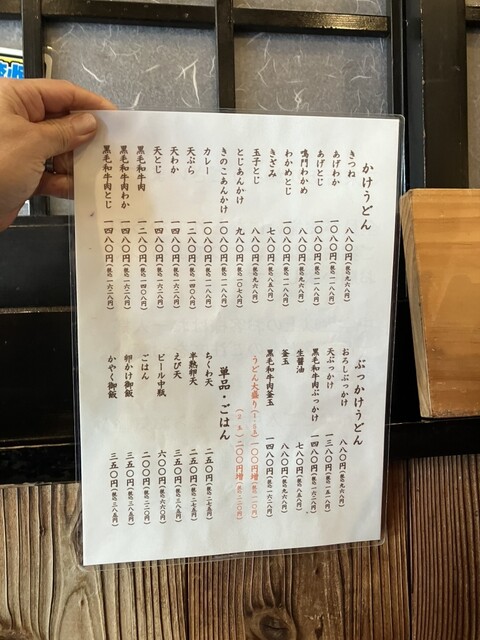 かけうどん
きつね 八八〇円(税込九六八円)
あげわか 一〇八〇円(税込一一八八円)
あげとじ 一〇八〇円(税込一一八八円)
鳴門わかめ 八八〇円(税込九六八円)
わかめとじ 一〇八〇円(税込一一八八円)
きざみ 七八〇円(税込八五八円)
玉子とじ 八八〇円(税込九六八円)
とじあんかけ 九八〇円(税込一〇七八円)
きのこあんかけ 一〇八〇円(税込一一八八円)
カレー 一〇八〇円(税込一一八八円)
天ぷら 一二八〇円(税込一四〇八円)
天わか 一四八〇円(税込一六二八円)
天とじ 一四八〇円(税込一六二八円)
黒毛和牛肉 一二八〇円(税込一四〇八円)
黒毛和牛肉わか 一四八〇円(税込一六二八円)
黒毛和牛肉とじ 一四八〇円(税込一六二八円)
ぶっかけうどん
おろしぶっかけ 八八〇円(税込九六八円)
天ぶっかけ 一三八〇円(税込一五一八円)
黒毛和牛肉ぶっかけ 一四八〇円(税込一六二八円)
生醤油 七八〇円(税込八五八円)
釜玉 八八〇円(税込九六八円)
黒毛和牛肉釜玉 一四八〇円(税込一六二八円)
うどん大盛り 一〇〇円増(税込一一〇円)
二〇〇円増(税込二二〇円)
単品・ごはん
ちくわ天 二五〇円(税込二七五円)
半熟卵天 二五〇円(税込二七五円)
えび天 三五〇円(税込三八五円)
ビール中瓶 六〇〇円(税込六六〇円)
ごはん 二〇〇円(税込二二〇円)
卵かけ御飯 三五〇円(税込三八五円)
かやく御飯 三五〇円(税込三八五円)